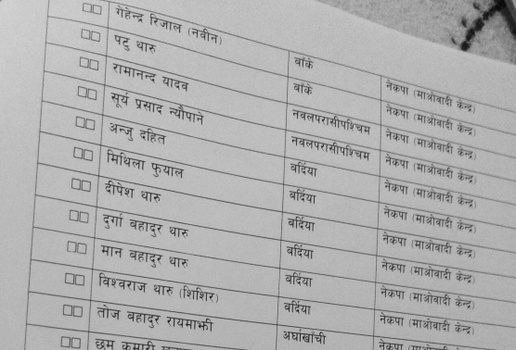 □□ गेहेन्द्र रिजाल (नवीन) बाँके नेकपा (माओवादी केन्द्र)
□□ पटु थारु बाँके नेकपा (माओवादी केन्द्र)
□□ रामानन्द यादव नवलपरासीपश्चिम नेकपा (माओवादी केन्द्र)
□□ सूर्य प्रसाद न्यौपाने नवलपरासीपश्चिम नेकपा (माओवादी केन्द्र)
□□ अन्जु दहित बर्दिया नेकपा (माओवादी केन्द्र)
□□ मिथिला फुयाल बर्दिया नेकपा (माओवादी केन्द्र)
□□ दीपेश थारु बर्दिया नेकपा (माओवादी केन्द्र)
□□ दुर्गा बहादुर थारु बर्दिया नेकपा (माओवादी केन्द्र)
□□ मान बहादुर थारु बर्दिया नेकपा (माओवादी केन्द्र)
□□ विश्वराज थारु (शिशिर) बर्दिया नेकपा (माओवादी केन्द्र)
□□ तोज बहादुर रायमाझी अर्घाखाँची नेकपा (माओवादी केन्द्र)
□□ छम कुमारी